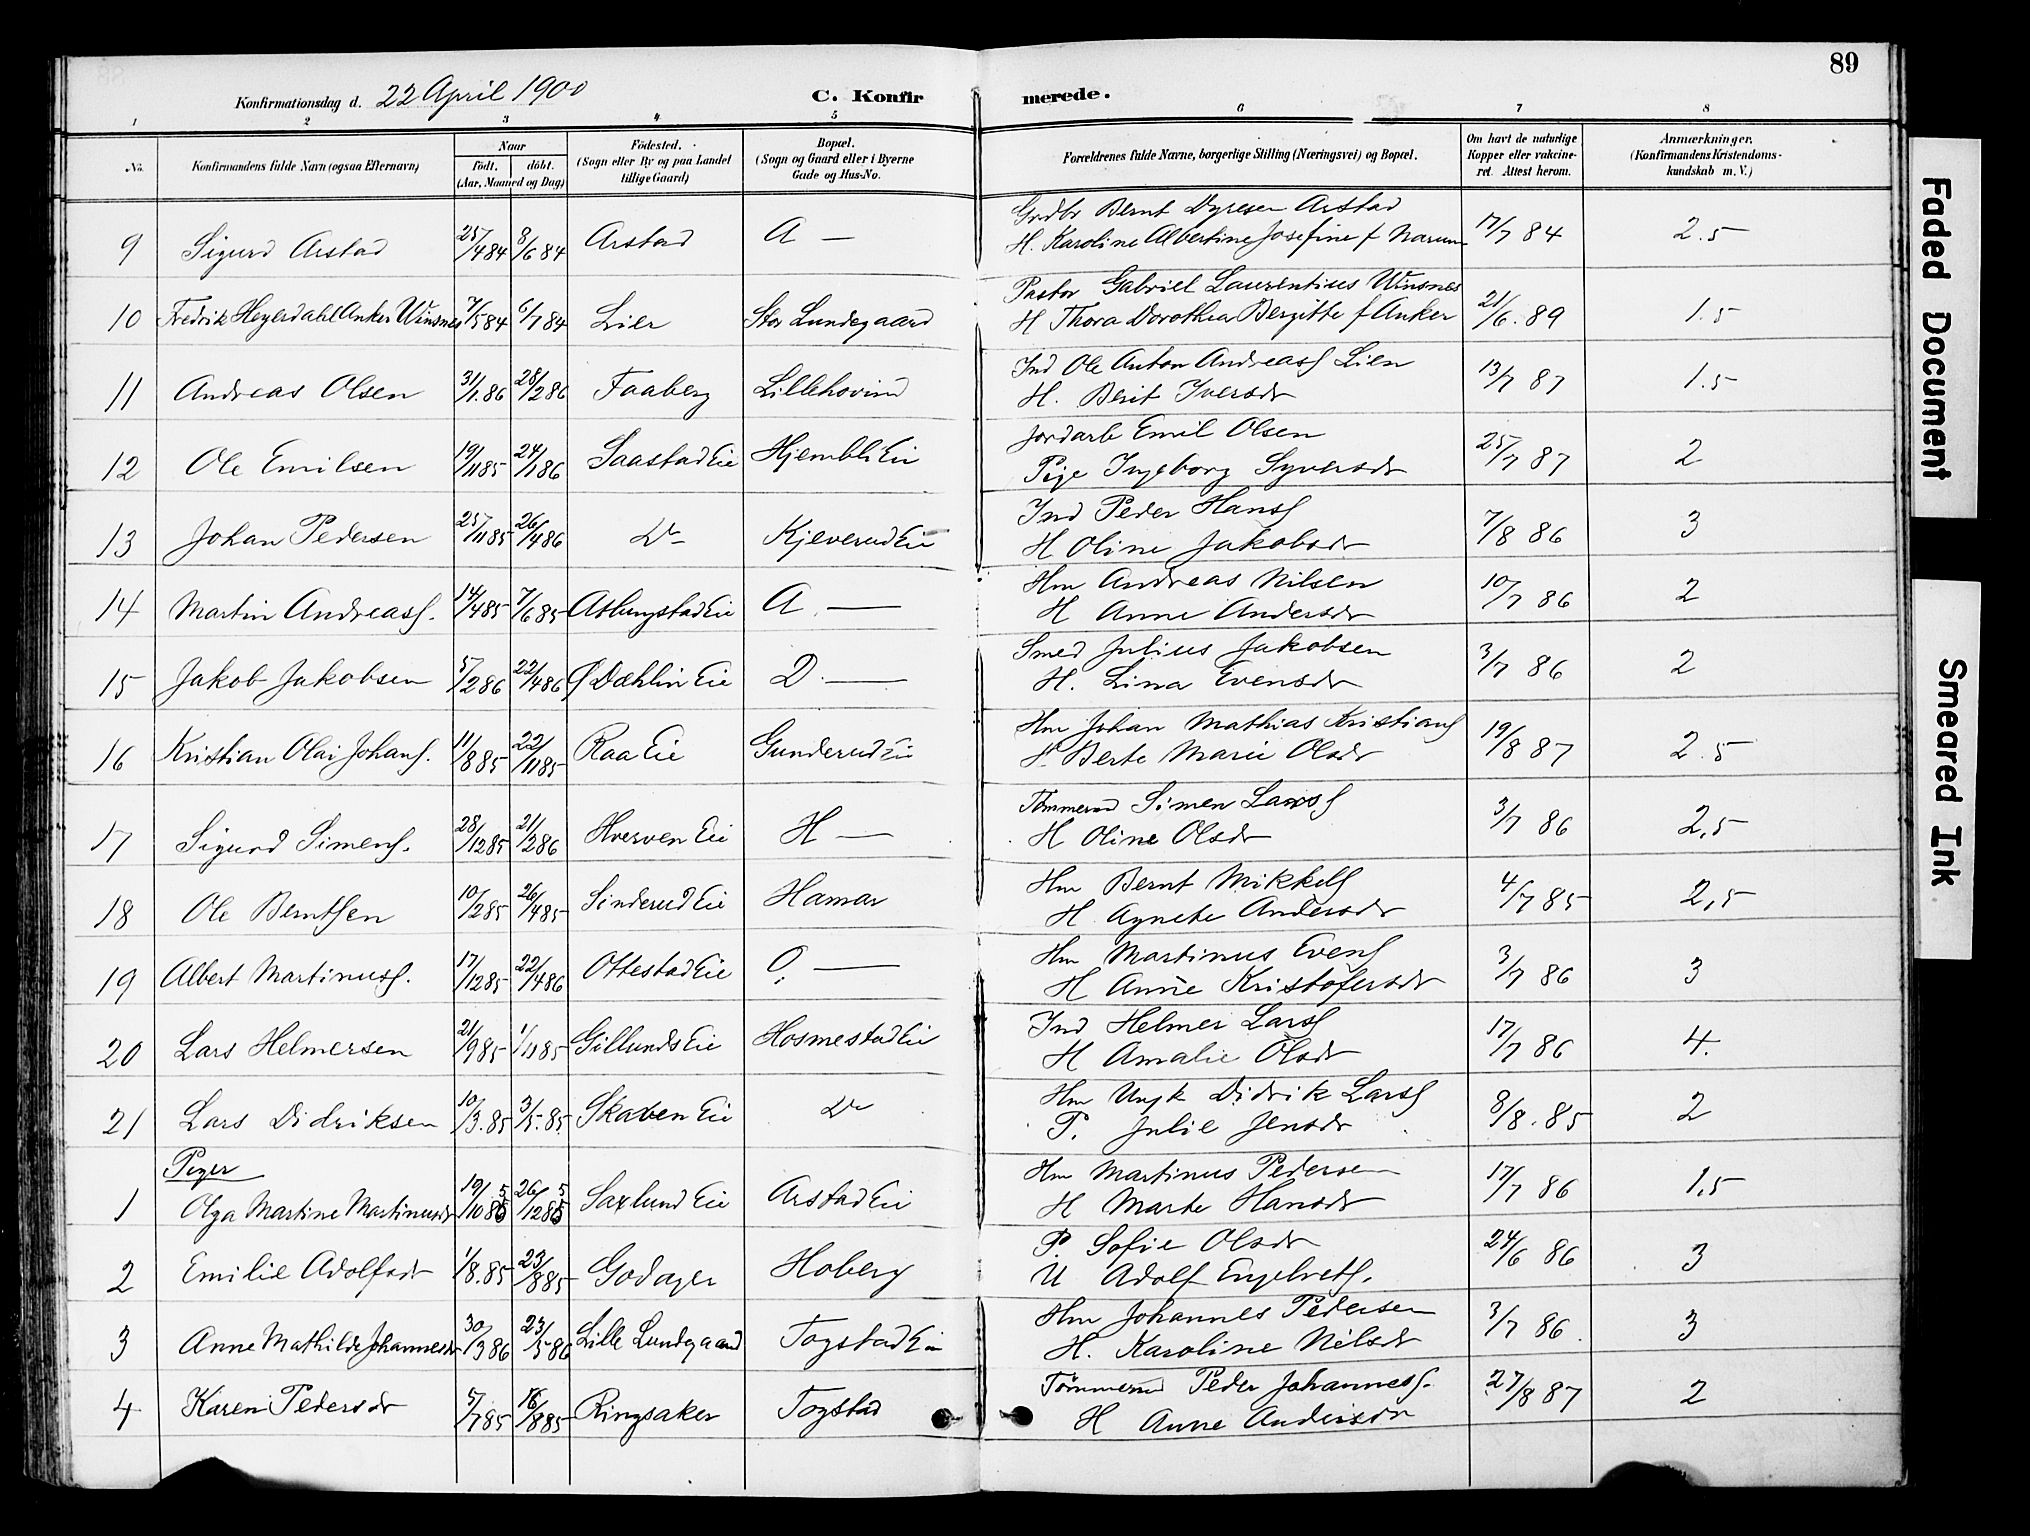 89
Konfirmationsdag d. 22 April 1900
C. Konfirmerede.
1 2 3 4 5 6 7 8
No.
Konfirmandens fulde Navn (ogsaa Efternavn)
Naar
født. døbt.
(Aar, Maaned og Dag)
Fødested.
(Sogn eller By og paa Landet
tillige Gaard)
Bopæl.
(Sogn og Gaard eller i Byerne
Gade og Hus-No.
Forældrenes fulde Navne, borgerlige Stilling (Næringsvei) og Bopæl.
Om havt de naturlige
Kopper eller vakcine-
ret. Attest herom.
Anmærkninger.
(Konfirmandens Kristendoms-
kundskab m. V.)
9 Sigurd Arstad 25/4 84 8/6 84 Arstad A — Grdbr Bernt Dyresen Arstad 17/7 84 2.5
H. Karoline Albertine Josefine f Narum
10 Fredrik Heyerdahl Anker Winsnes 7/5 84 6/7 84 Lier Stor Lundegaard Pastor Gabriel Laurentius Winsnes 21/6. 89 1.5
H Thora Dorothea Bergitte f Anker
11 Andreas Olsen 31/1. 86 28/2 86 Faaberg Lillehovind Ind Ole Anton Andreass Lien 13/7 87 1.5
H. Berit Iversdr
12 Ole Emilsen 19/11 85 24/1 86 Saastad Eie Hjembli Eie Jordarb Emil Olsen 25/7 87 2
Pige Ingeborg Syversdr
13 Johan Pedersen 25/11 85 26/4 86 Do Kjeverud Eie Ind Peder Hanss 7/8 86 3
H Oline Jakobsdr
14 Martin Andreass. 14/4 85 7/6 85 Aslungstad Eie A. — Hm Andreas Nilsen 10/7 86 2
H Anne Andersdr
15 Jakob Jakobsen 5/2 86 22/4 86 Ø Dæhlin Eie D. — Smed Julius Jakobsen 3/7 86 2
H. Lina Evensdr
16 Kristian Olai Johans. 11/8 85 22/11 85 Raa Eie Gunderud Eie Hm Johan Mathias Kristians 19/8 87 2.5
H. Berte Marie Olsdr
17 Sigurd Simens. 28/12 85 21/2 86 Hverven Eie H — Tømmermd Simen Larss 3/7 86 2,5
H Oline Olsdr
18 Ole Berntsen 10/2 85 26/4 85 Sinderud Eie Hamar Hm Bernt Mikkels 4/7 85 2,5
H. Agnete Andersdr
19 Albert Martinuss. 17/12 85 22/4 86 Ottestad Eie O. — Hm Martinus Evens 3/7 86 3
H Anne Kristofersdr
20 Lars Helmersen 21/9 85 1/11 85 Gillunds Eie Hosmestad Eie Ind Helmer Larss 17/7 86 4.
H Amalie Olsdr
21 Lars Didriksen 10/3. 85 3/5. 85 Skaven Eie Do Hm Ungk Didrik Larss 8/8. 85 2
P. Julie Jensdr
Piger
1 Olga Martine Martinusdr 19/10 85 26/12 85 Saxlund Eie Arstad Eie Hm Martinus Pedersen 17/7 86 1,5
H Marte Hansdr
2 Emilie Adolfsdr 1/8. 85 23/8 85 Godager Hoberg P. Sofie Olsdr 24/6 86 3
U Adolf Engebrets.
3 Anne Mathilde Johannesdr 30/3 86 23/5 86 Lille Lundgaard Togstad Eie Hm Johannes Pedersen 3/7 86. 3
H. Karoline Nilsdr
4 Karen Pedersdr 5/7 85 16/8 85 Ringsaker Togstad Tømmermd Peder Johanness. 27/8 87 2
H Anne Andersdr
Faded Document
Smeared Ink